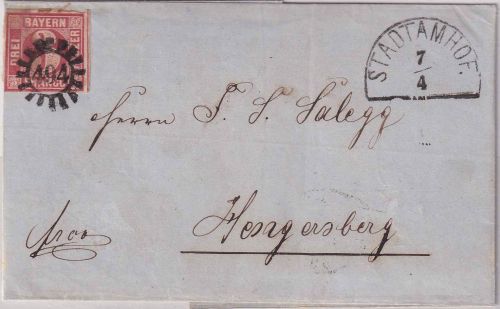 BAYERN
DREI
KREUZER
494
STADTAMHOF.
7
4
Herrn J. S. Salegg
Hengersberg
frco